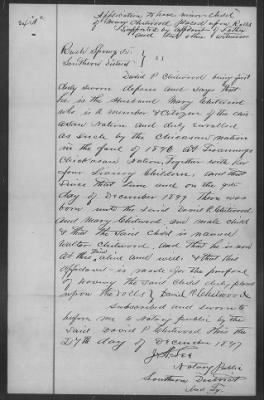 Application to have minor child
of Mary Chitwood placed upon Rolls
Supported by affidavit of Father
and two other witnesses
Rush Springs I.T.
Southern District
David P Chitwood being first
duly sworn deposes and says that
he is the Husband Mary Chitwood
who is a member & Citizen of the Chick
asaw Nation and duly enrolled
as such by the Chickasaw nation
in the fall of 1896 at
Chickasaw Nation, Together with her
four living Children, and that
since that time and on the 9th
day of December 1897 there was
born unto the said David P. Chitwood
and Mary Chitwood one male child
& that the said child is named
Walton Chitwood, and that he is now
at this time alive and well & that this
affidavit is made for the purpose
of having the said child duly placed
upon the rolls David P. Chitwood
Subscribed and sworn to
before me a Notary Public by the
said David P Chitwood this the
27th day of December 1897
Notary Public
Southern District
Ind Ty.